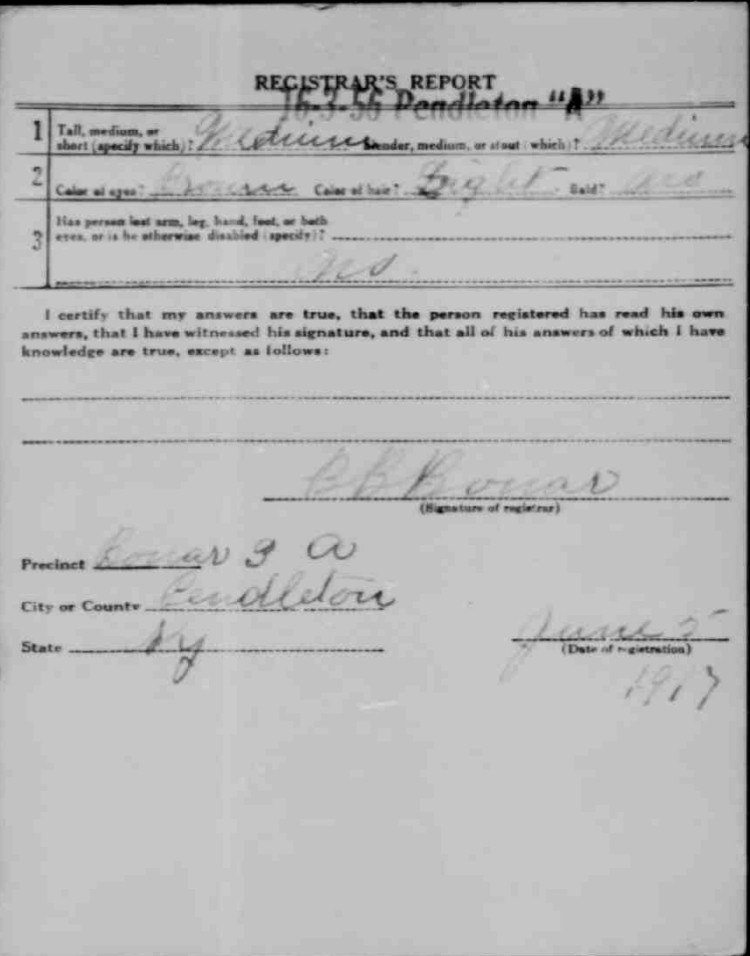 REGISTRAR'S REPORT
16-3-56 Pendleton "A"
1 Tall, medium, or
short (specify which)? Medium Slender, medium, or stout (which)? Medium
2 Color of eyes? Brown Color of hair? Light Bald? No
3 Has person lost arm, leg, hand, foot, or both
eyes, or is he otherwise disabled (specify)?
No.
I certify that my answers are true, that the person registered has read his own
answers, that I have witnessed his signature, and that all of his answers of which I have
knowledge are true, except as follows:
Bonar
(Signature of registrar)
Precinct Bonar 3 A
City or County Pendleton
State Ky
June 5
(Date of registration)
1917